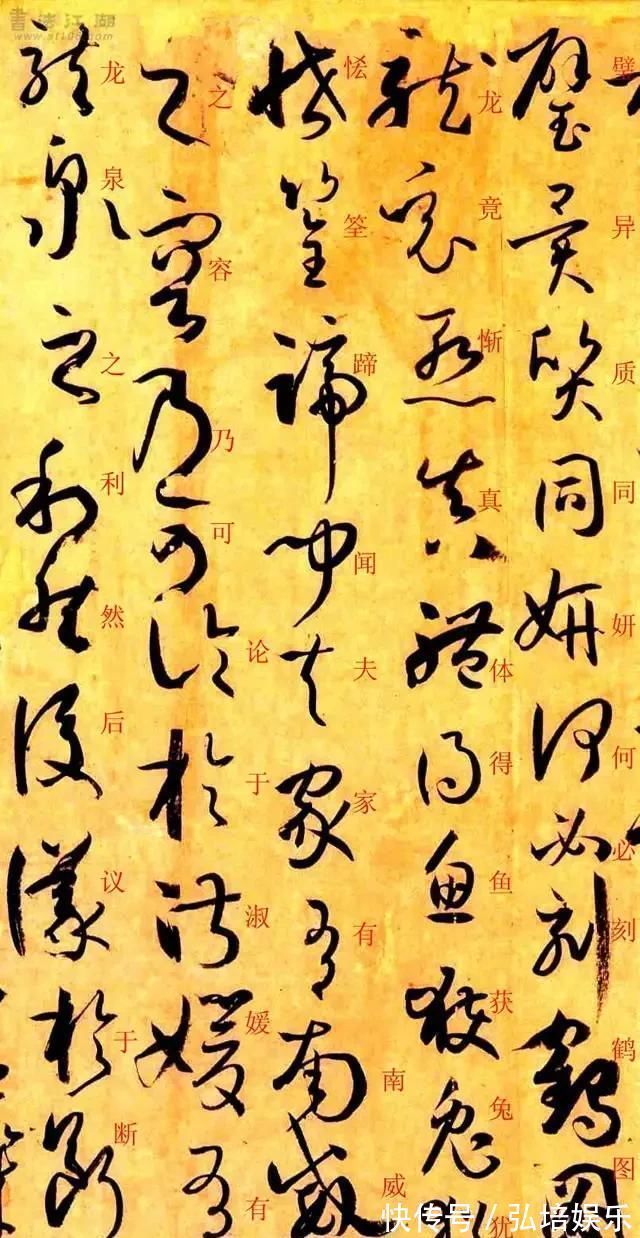 書法江湖
www.sf108.com
璧异质同妍何必刻鹤图
龙竟惭真体得鱼获兔犹
恡筌蹄闻夫家有南威
之容乃可论于淑媛有
龙泉之利然后议于断
快传号/弘培娱乐